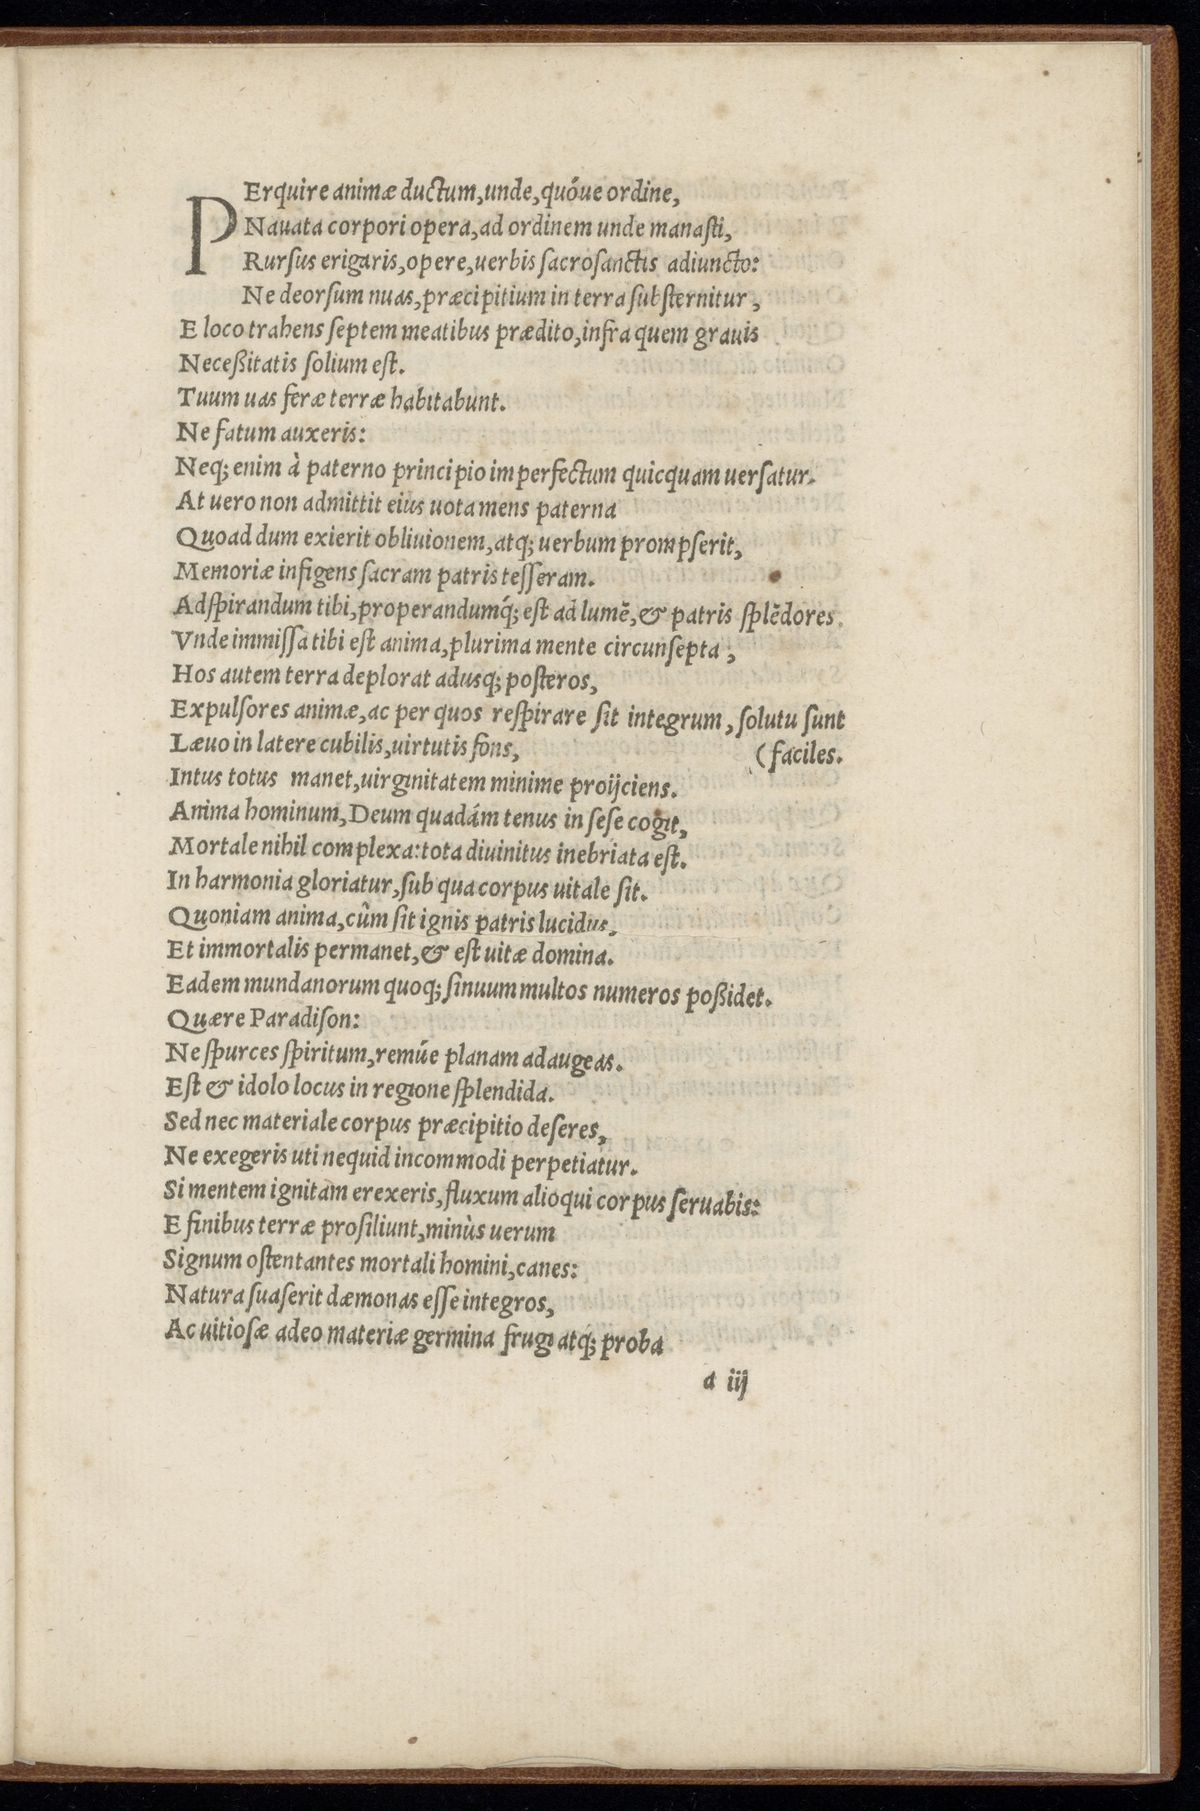 PErquire animæ ductum,unde,quóue ordine,
Nauata corpori opera,ad ordinem unde manasti,
Rursus erigaris,opere,uerbis sacrosanctis adiuncto:
Ne deorsum nuas,præcipitium in terra substernitur,
E loco trahens septem meatibus prædito,infra quem grauis
Neceßitatis solium est.
Tuum uas feræ terræ habitabunt.
Ne fatum auxeris:
Neq; enim à paterno principio imperfectum quicquam uersatur.
At uero non admittit eius uota mens paterna
Quoad dum exierit obliuionem,atq; uerbum prompserit,
Memoriæ infigens sacram patris tesseram.
Adspirandum tibi,properandumq́; est ad lumē,& patris splēdores.
Vnde immissa tibi est anima,plurima mente circunsepta,
Hos autem terra deplorat adusq; posteros,
Expulsores animæ,ac per quos respirare sit integrum,solutu sunt
Læuo in latere cubilis,uirtutis fons, (faciles.
Intus totus manet,uirginitatem minime proijciens.
Anima hominum,Deum quadám tenus in sese cogit,
Mortale nihil complexa:tota diuinitus inebriata est.
In harmonia gloriatur,sub qua corpus uitale sit.
Quoniam anima,cûm sit ignis patris lucidus,
Et immortalis permanet,& est uitæ domina.
Eadem mundanorum quoq; sinuum multos numeros poßidet.
Quære Paradison:
Ne spurces spiritum,remúe planam adaugeas.
Est & idolo locus in regione splendida.
Sed nec materiale corpus præcipitio deseres,
Ne exegeris uti nequid incommodi perpetiatur.
Si mentem ignitam erexeris,fluxum alioqui corpus seruabis:
E finibus terræ prosiliunt,minùs uerum
Signum ostentantes mortali homini,canes:
Natura suaserit dæmonas esse integros,
Ac uitiosæ adeo materiæ germina frugi atq́; proba
a iij